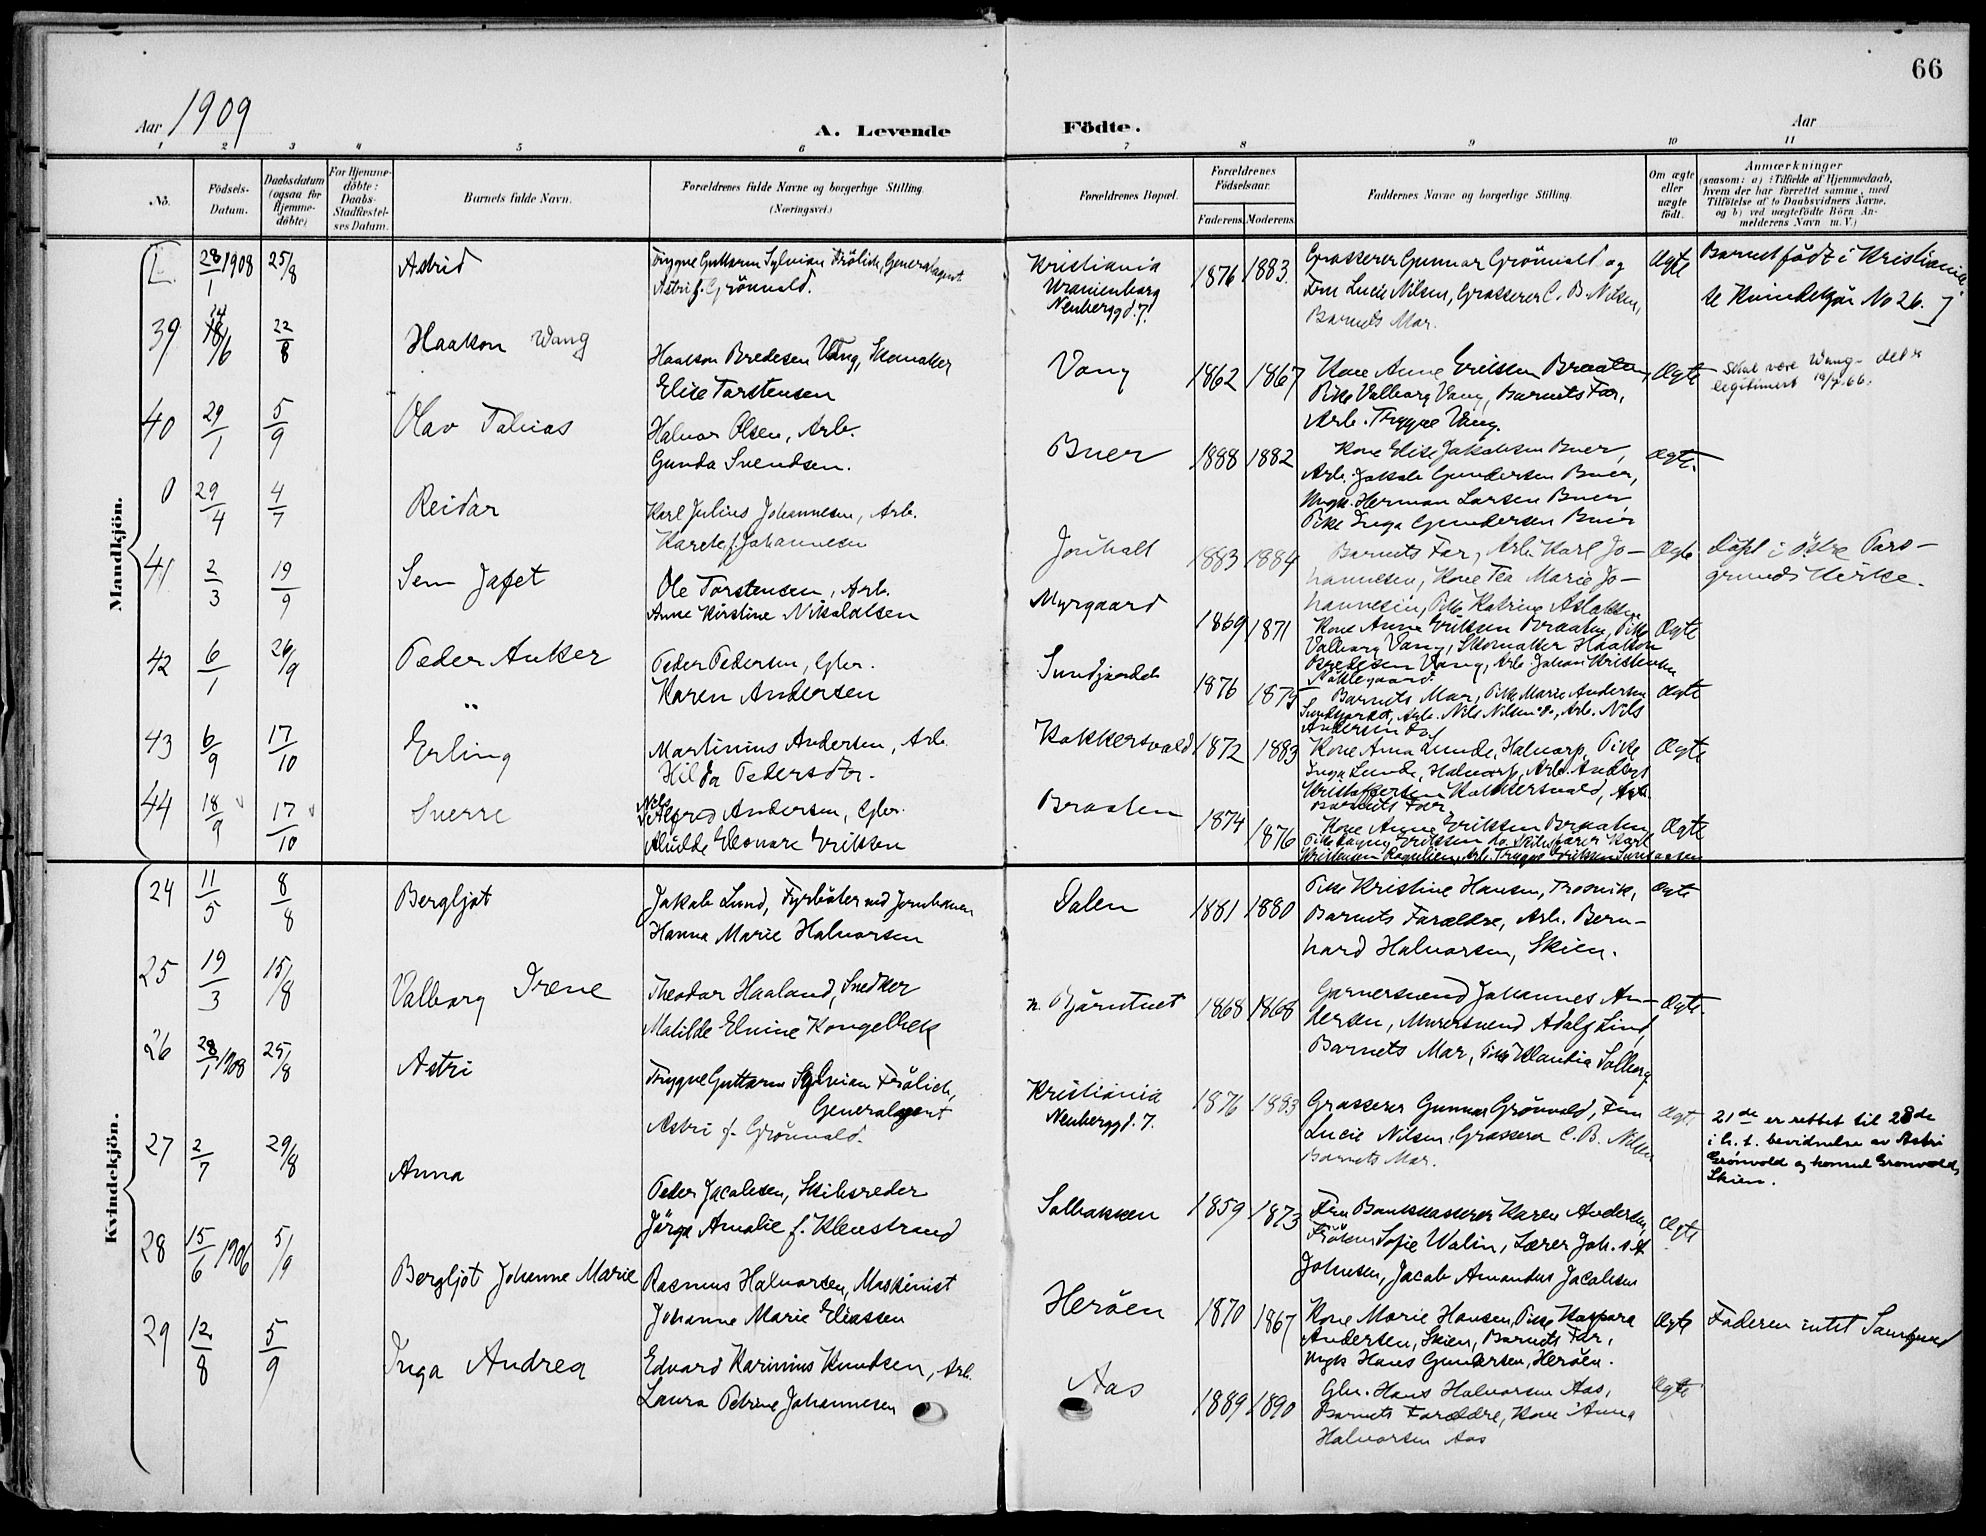 66
Aar 1909
A. Levende Födte.
Aar
1 2 3 4 5 6 7 8 9 10 11
No.
Födsels-Datum.
Daabsdatum (ogsaa för Hjemme-döbte)
For Hjemme-döbte: Daabs-Stadfæstel-ses Datum.
Barnets fulde Navn.
Forældrenes fulde Navne og borgerlige Stilling. (Næringsvei.)
Forældrenes Bopæl.
Forældrenes Födselsaar.
Faderens. Moderens.
Faddernes Navne og borgerlige Stilling.
Om ægte eller uægte födt.
Anmærkninger
(saasom: a) i Tilfælde af Hjemmedaab, hvem der har forrettet samme, med Tilföielse af to Daabsvidners Navne, og b) ved uægtefödte Börn An-melderens Navn m. V.)
Mandkjön.
28/1 1908 25/8 Astrid
Trygve Guttorm Sylvian Frölich, Generalagent
Astri f. Grönvold.
Kristiania
Uranienborg
Neubergg d. 7.
1876 1883.
Grosserer Gunnar Grönvold og
Fru Lucie Nilsen, Grosserer C. B. Nilsen,
Barnets Mor.
Ægte
Barnet födt i Kristiania.
se Kvindekjön No 26. ]
39 /6 22/8 Haakon Wang
Haakon Bredesen Vang, Skomaker
Elise Torstensen
Vang 1862 1867
Kone Anne Eriksen Braaten,
Pike Valborg Vang, Barnets Far,
Arb. Trygve Vang.
Ægte
Skal være Wang - det er
legitimert 19/7.66.
40 29/1 5/9 Olav Tobias
Halvor Olsen, Arb.
Gunda Svendsen.
Buer 1888 1882
Kone Elise Jakobsen Buer,
Arb. Jakob Gundersen Buer,
Ungk. Herman Larsen Buer
Pike Inga Gundersen Buer
Ægte.
0 29/4 4/7 Reidar
Karl Julius Johannesen, Arb.
Karete f. Johannesen
Jönholt 1883 1884
Barnets Far, Arb. Karl Jo-
hannesen, Kone Tea Marie Jo-
hannesen, Pike Katrine Aslaksen
Ægte
Döpt i Östre Pors-
grunds Kirke.
41 2/3 19/9 Sem Jafet
Ole Torstensen, Arb.
Anne Kirstine Nikolaisen
Myrgaard 1869 1871
Kone Anne Eriksen Braaten, Pike
Valborg Vang, Skomaker Haakon
Bredesen Vang, Arb. Johan Kristensen
Ægte
42 6/1 26/9 Peder Anker
Peder Pedersen, Gbr.
Karen Andersen
Sundjordet 1876 1875
Barnets Mor, Pike Marie Andersen
Sundjordet, Arb. Nils Nilsen do, Arb. Nils
Andersen do
Ægte
43 6/9 17/10 Erling
Martinius Andersen, Arb.
Hilda Pedersdtr.
Kokkersvold 1872 1883
Kone Anna Lunde, Halvarp, Pike
Inga Lunde, Halvarp, Arb. Anders
Kristoffersen Kokkersvold, Arb.
Barnets Far
Ægte
44 18/9 17/10 Sverre
Nels Alfred Andersen, Gbr.
Alvilde Eleonore Eriksen
Braaten 1874 1876
Kone Anne Eriksen Braaten
Pike Dagny Eriksen do, Skibsfører Karl
Kristensen, Arb. Trygve Eriksen
Ægte
Kvindekjön.
24 11/5 8/8 Bergljot
Jakob Lund, Fyrböter ved Jernbanen
Hanna Marie Halvorsen
Dalen 1881 1880
Pike Kristine Hansen, Trosvik,
Barnets Forældre, Arb. Bern-
hard Halvorsen, Skien.
Ægte
25 19/3 15/8 Valborg Irene
Theodor Haaland, Snedker
Matilde Elvine Kongelbek
n. Bjørntvet 1868 1868
Garversvend Johannes An-
dersen, Murersvend Adolf Lind,
Barnets Mor, Pike Klaudia Solberg
Ægte.
26 28/1 1908 25/8 Astri
Trygve Guttorm Sylvian Frölich,
Generalagent
Astri f. Grönvold.
Kristiania
Neubergg d. 7.
1876 1883
Grosserer Gunnar Grønvold, Fru
Lucie Nilsen, Grosserer C. B. Nilsen
Barnets Mor.
Ægte
21de er rettet til 28de
i h. t. bevidnelse av Astri
Grønvold og konsul Grønvold,
Skien.
27 2/7 29/8 Anna
Peder Jacobsen, Skibsreder
Jörga Amalie f. Klenstrand
Solbakken 1859 1873
Fru Bankkasserer Karen Andersen,
Fröken Sofie Walin, Lærer Joh. s. A.
Johnsen, Jacob Amandus Jacobsen
Ægte
28 15/6 1906 5/9 Bergljot Johanne Marie
Rasmus Halvorsen, Maskinist
Johanne Marie Eliassen
Heröen 1870 1867
Kone Marie Hansen, Pike Kaspara
Andersen, Skien, Barnets Far,
Ungk. Hans Gundersen, Heröen.
Ægte
Faderen intet Samfund
29 12/8 5/9 Inga Andrea
Edvard Karinius Knudsen, Arb.
Laura Petrine Johannesen
Aas 1889 1890
Gbr. Hans Halvorsen Aas,
Barnets Forældre, Kone Anna
Halvorsen Aas
Ægte